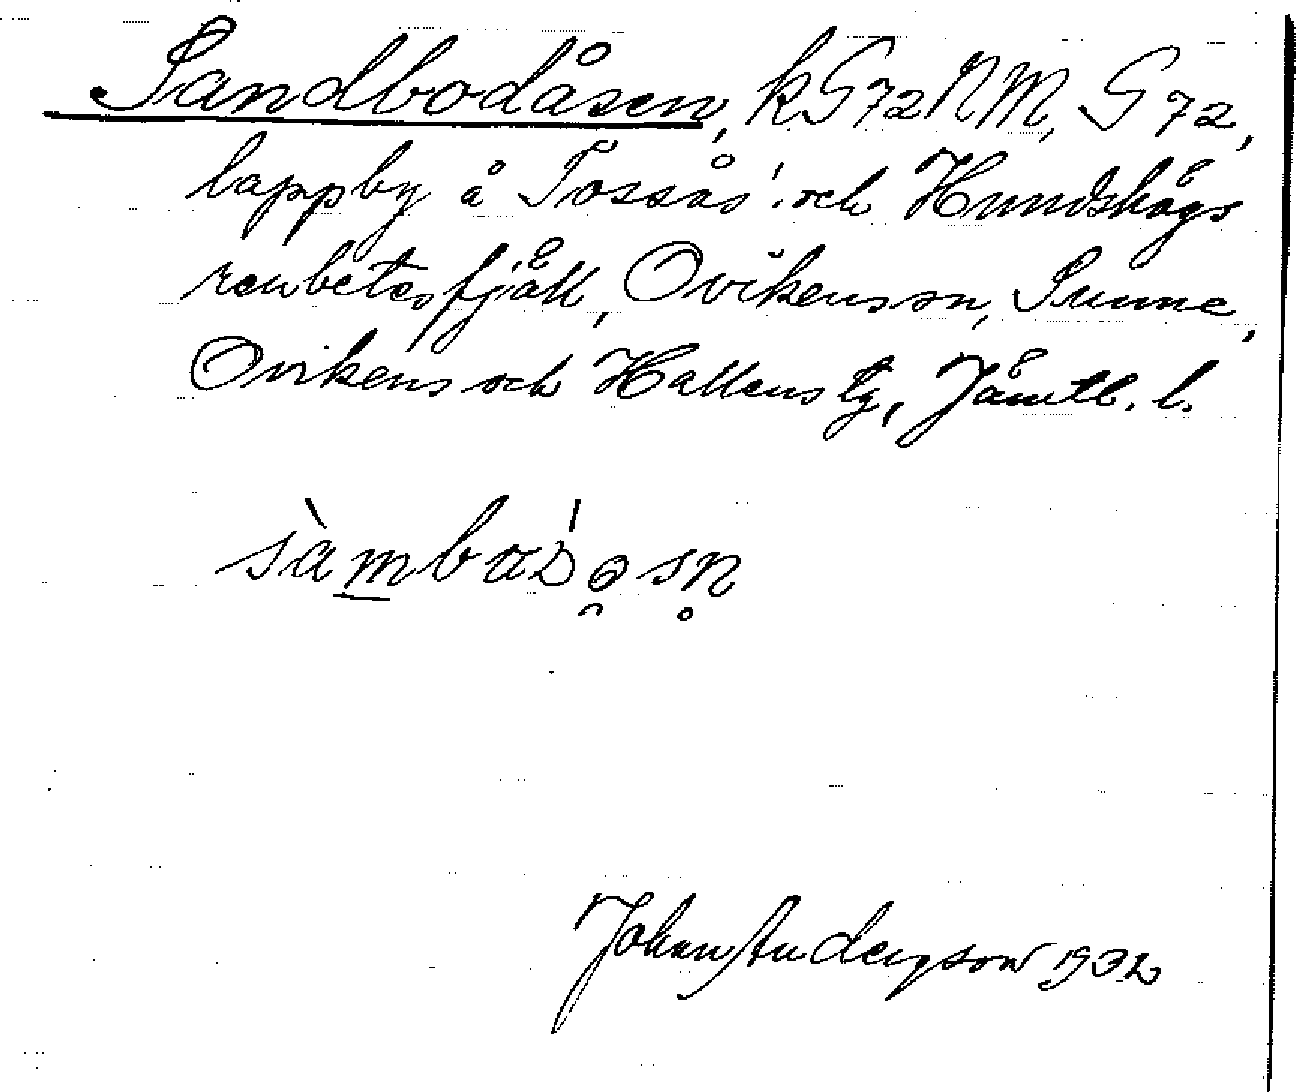 Sandbodåsen, kG72NM, G72,
lappby å Tossås! och Hundshögs
renbetesfjäll, Ovikens sn, Sunne,
Ovikens och Hallens tg, Jämtl. l.
Johan Andersson 1932